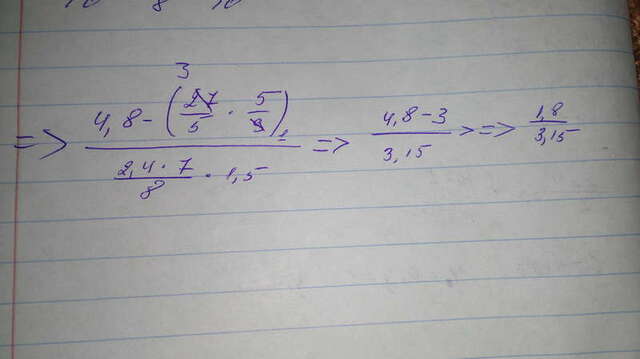 3
=> 4,8 - (27/5 · 5/9) / (2,4 · 7/8 · 1,5) => 4,8 - 3 / 3,15 => => 1,8 / 3,15